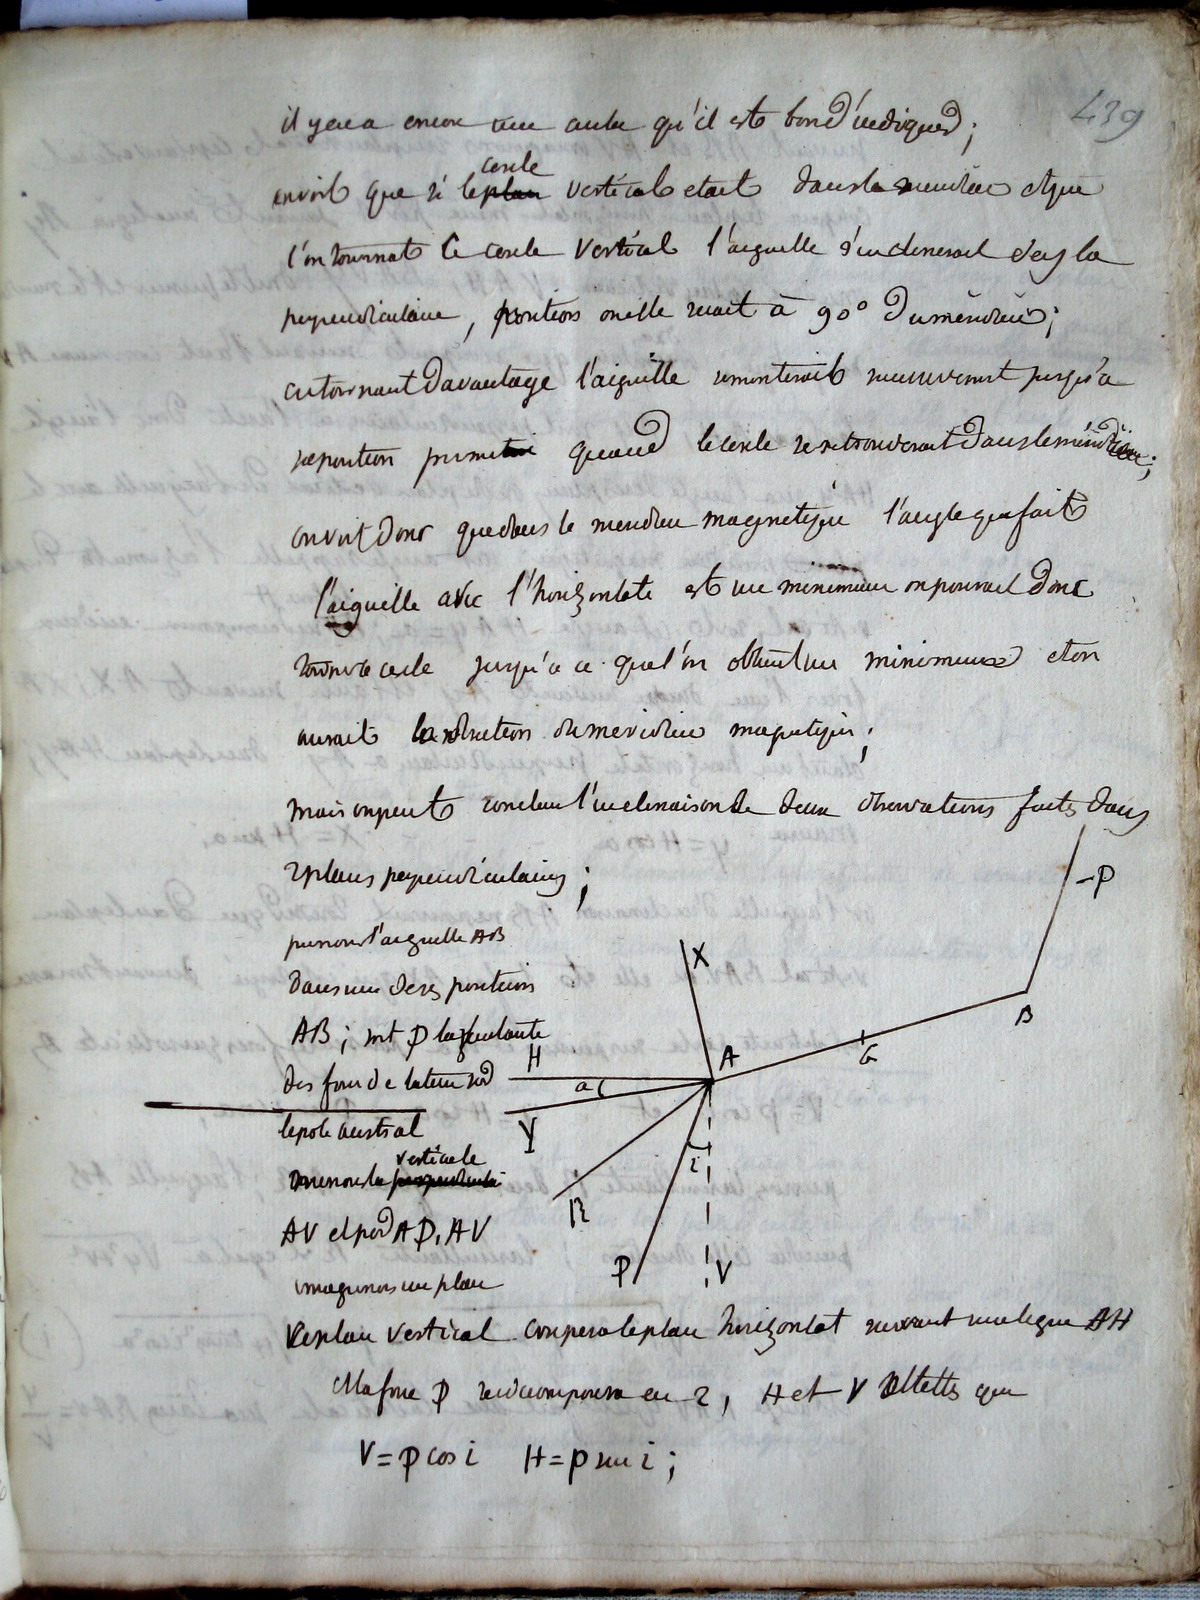 439
il y en a encore une autre qu'il est bon d'indiquer ;
cercle
on voit que si le plan vertical etait dans le meridien et que
l'on tournat le cercle vertical l'aiguille s'inclinerait vers la
perpendiculaire, position où elle serait à 90° du méridien ;
en tournant davantage l'aiguille remonterait successivement jusqu'à
sa position primitive quand le cercle se retrouverait dans le méridien ;
on voit donc que dans le meridien magnetique l'angle que fait
l'aiguille avec l'horizontale est un minimum on pourrait donc
tourner le cercle jusqu'à ce que l'on obtint un minimum et on
aurait la direction du meridien magnetique ;
mais on peut conclure l'inclinaison de deux observations faites dans
2 plans perpendiculaires ;
prenons l'aiguille AB
dans une de ses positions
AB ; soit P la resultante
des forces de la terre sur
le pole austral
verticale
menons la perpendiculaire
AV et par AP, AV
imaginons un plan
X
-P
B
G
A
H
a
Y
R
i
P
V
le plan vertical coupera le plan horizontal suivant une ligne AH
et la force P se decomposera en 2, H et V telles que
V = P cos i H = P sin i ;